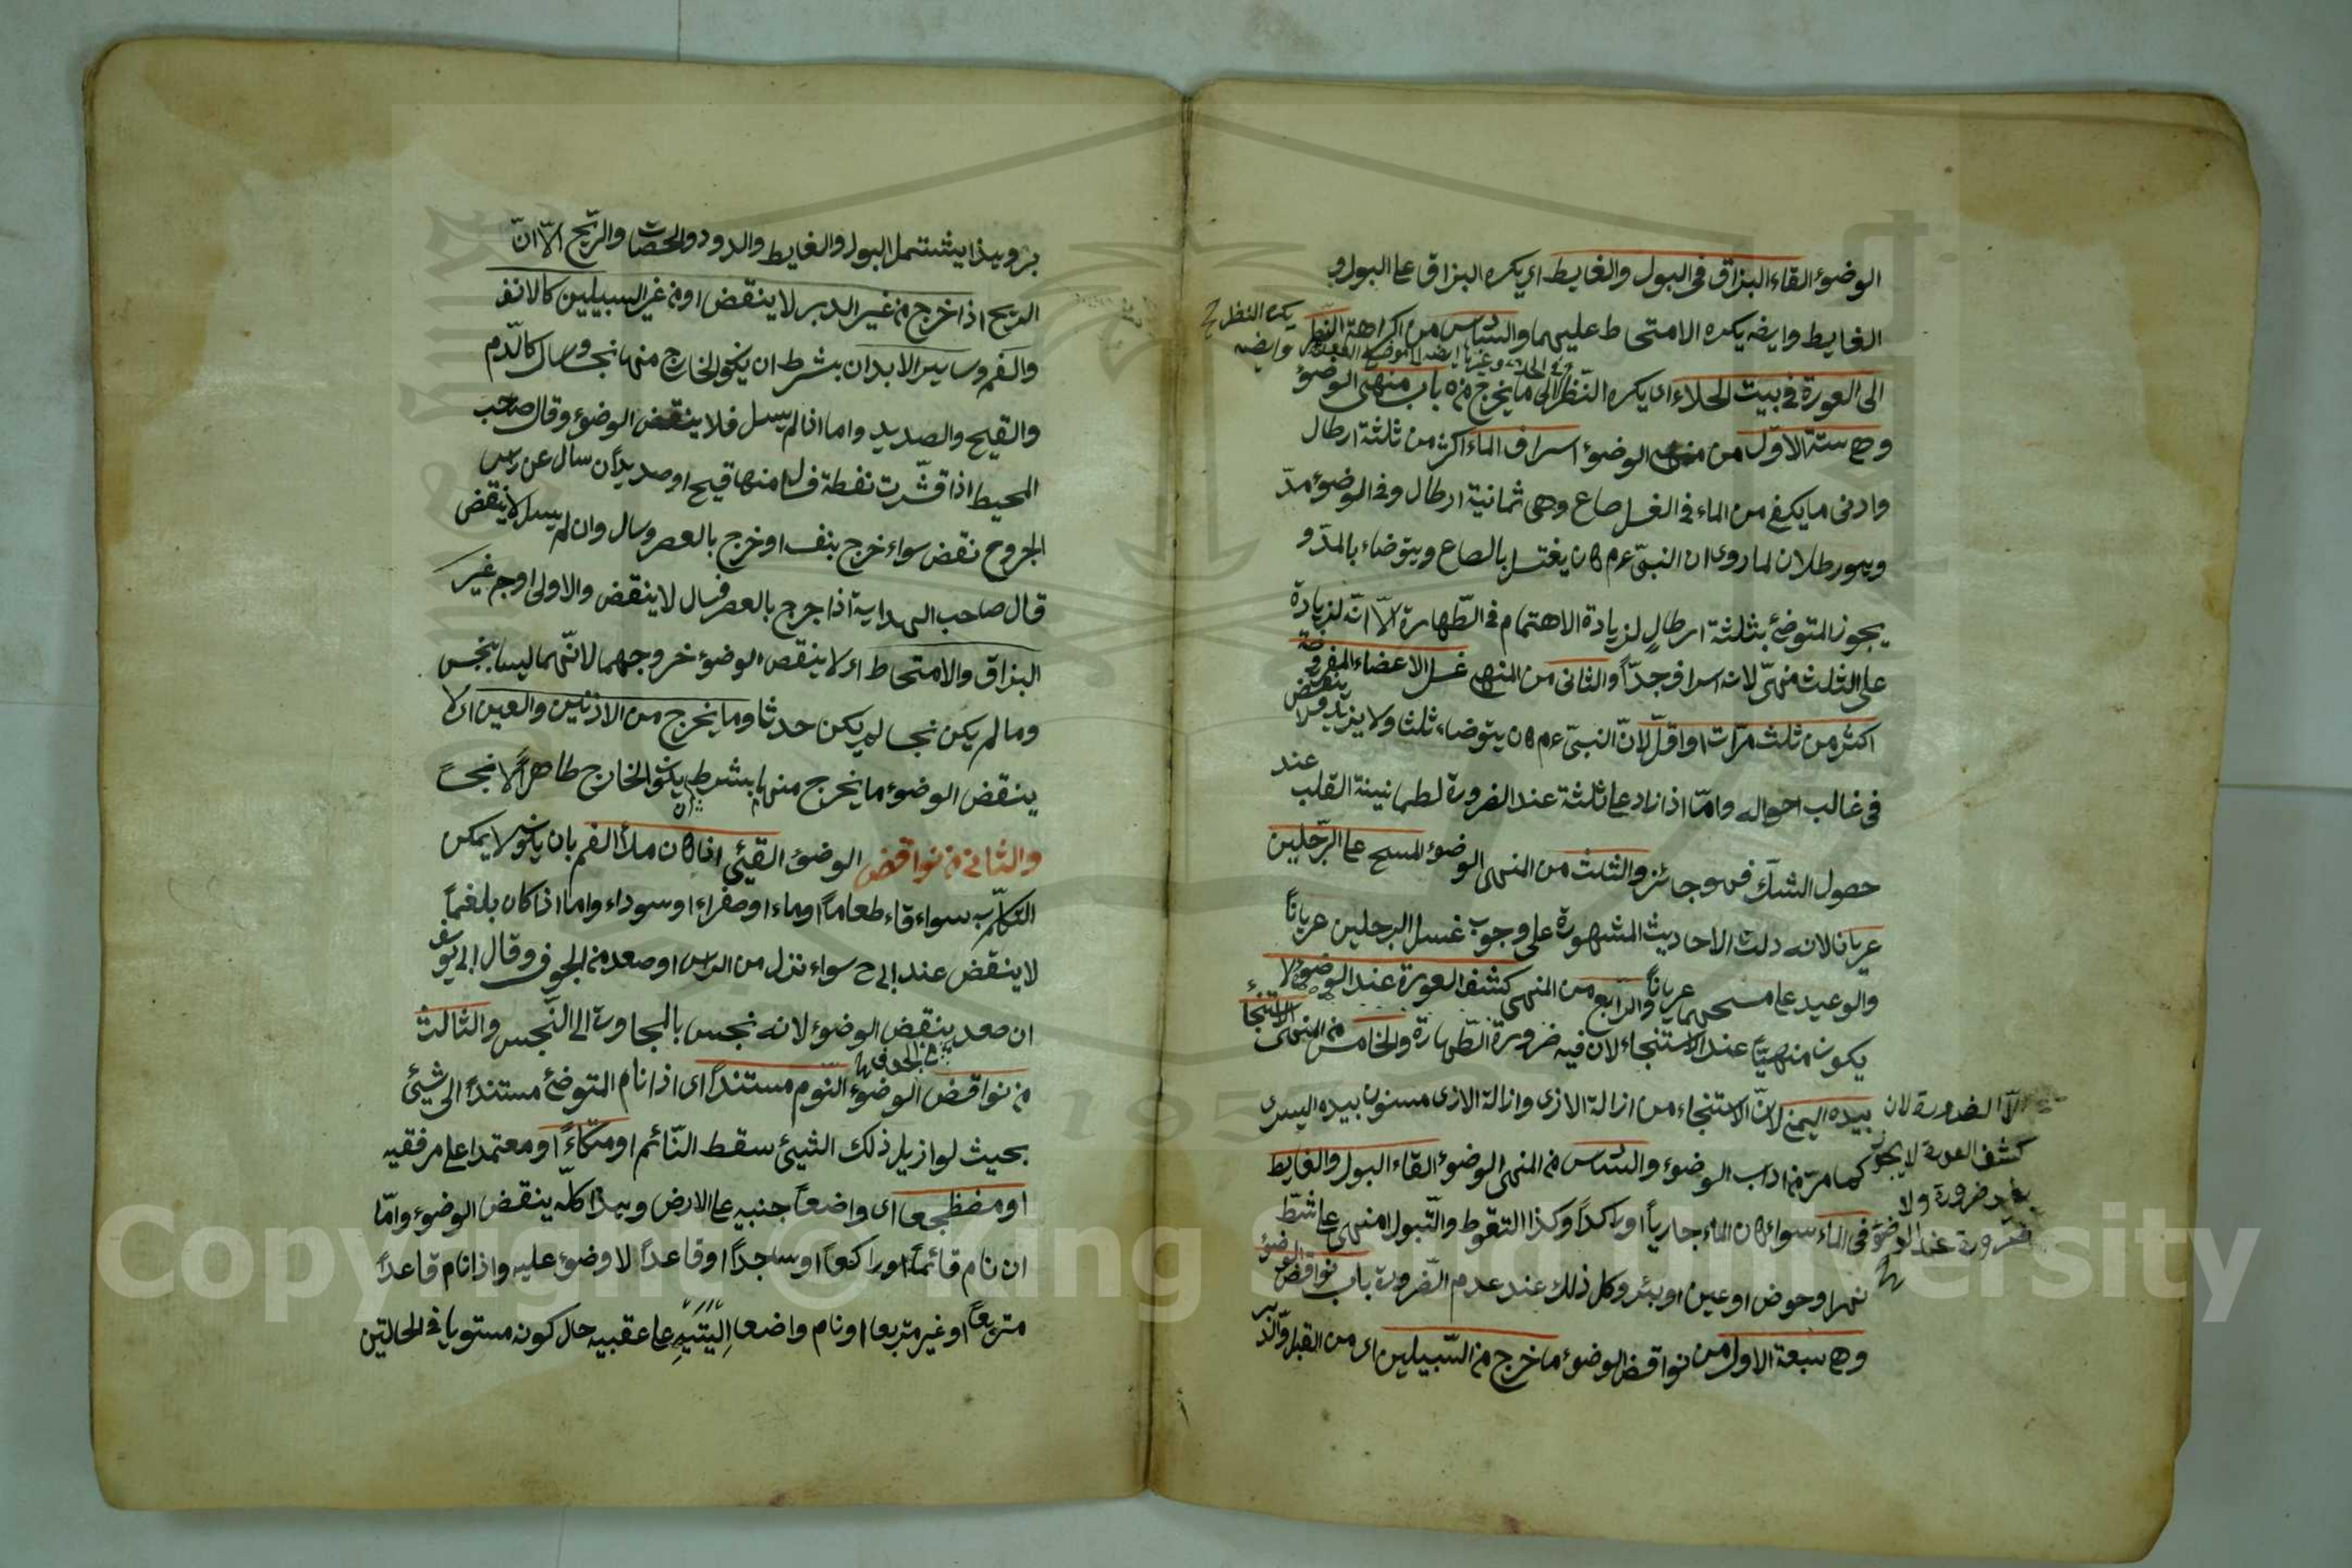 الوضوء القاء البزاق في البول والغايط اى يكره البزاق على البول و
الغايط وايضه يكره الامتحاط عليهما والسادس من اكراهة النظر
يكره النظر
وايضه
الى العورة في بيت الخلاء اى يكره النظر الى ما يخرج منه باب منهى الوضوء
وهي ستة الاول من منهى الوضوء اسراف الماء اكثر من ثلثة ارطال
وادنى ما يكفى من الماء في الغسل صاع وهى ثمانية ارطال وفي الوضوء مدّ
وهو رطلان لما روى ان النبيّ ءم كان يغتسل بالصاع ويتوضاء بالمدّ و
يجوز المتوضئ بثلثة ارطالٍ لزيادة الاهتمام في الطّهارة الّا انّه لزيادة
على الثلث منهىّ لانه اسراف جدّاً والثانى من المنهى غسل الاعضاء المفروضة
اكثر من ثلث مرّات او اقلّ لانّ النبيّ ءم كان يتوضاء ثلثا ولا يزيد ولا ينقض
في غالب احواله وامّا اذا زاد على ثلثة عند الضرورة لطمانينة القلب عند
حصول الشكّ فهو جائز والثلث من المنهى الوضوء المسح على الرّجلين
عريانا لانه دلت الاحاديث المشهورة على وجوب غسل الرجلين عرياناً
والوعيد على مسحهما عرياناً والرّابع من المنهى كشف العورة عند الوضوء لا
يكون منهيّاً عند الاستنجاء لان فيه ضرورة الطّهارة والخامس من المنهى الاستنجاء
بيده اليمنى لانّ الاستنجاء من ازالة الاذى وازالة الاذى مسنون بيده اليسرى
الّا الضرورة لان
كشف العورة لا يجوز
بغير ضرورة ولا
ضرورة عند الوضوء
كما مرّ من اداب الوضوء والسادس من المنهى الوضوء القاء البول والغايط
في الماء سواء كان الماء جارياً او راكداً وكذا التغوّط والتّبول منهى على شطّ
نهر او حوض او عين او بئر وكل ذلك عند عدم الضّرورة باب نواقض الوضوء
وهي سبعة الاول من نواقض الوضوء ما خرج من السّبيلين اى من القبل والدّبر
وهذا يشتمل البول والغايط والدود والحصات والرّيح الّا انّ
الريح اذا خرج من غير الدبر لا ينقض او من غير السبيلين كالانف
والفم وساير الابدان بشرط ان يكون الخارج منها نجسا وسال كالدّم
والقيح والصديد واما اذا لم يسل فلا ينقض الوضوء وقال صاحب
المحيط اذا قشّرت نفطة فسال منها قيح او صديد ان سال عن راس
الجروح نقض سواء خرج بنفسه او خرج بالعصر وسال وان لم يسل لا ينقض
قال صاحب الهداية اذا خرج بالعصر فسال لا ينقض والاولى اوجه غير
البزاق والامتحاط اى لا ينقض الوضوء خروجهما لانّهما ليسا بنجس
وما لم يكن نجسا لم يكن حدثا وما يخرج من الاذنين والعين اى لا
ينقض الوضوء ما يخرج منهما بشرط ان يكون الخارج طاهراً لا نجساً
والثانى من نواقض الوضوء القيئى اذا كان ملأ الفم بان يكون لا يمكن
التكلّم به سواء قاء طعاماً او ماء او صفراء او سوداء واما اذا كان بلغماً
لا ينقض عند ابى ح سواء نزل من الراس او صعد من الجوف وقال ابى يوسف
ان صعد ينقض الوضوء لانه نجس بالمجاورة الى النّجس والثالث
من الجوف
من نواقض الوضوء النّوم مستنداً اى اذا نام المتوضئ مستنداً الى شيئى
بحيث لو ازيل ذلك الشيئ سقط النّائم او متكاءً او معتمدا على مرفقيه
او مضطجعا اى واضعاً جنبيه على الارض وبهذا كلّه ينقض الوضوء وامّا
ان نام قائماً او راكعاً او ساجداً او قاعداً لا وضوء عليه واذا نام قاعداً
متربعاً او غير متربعا او نام واضعا اليتيه على عقبيه حال كونه مستويا في الحالتين
Copyright © King Saud University
1957